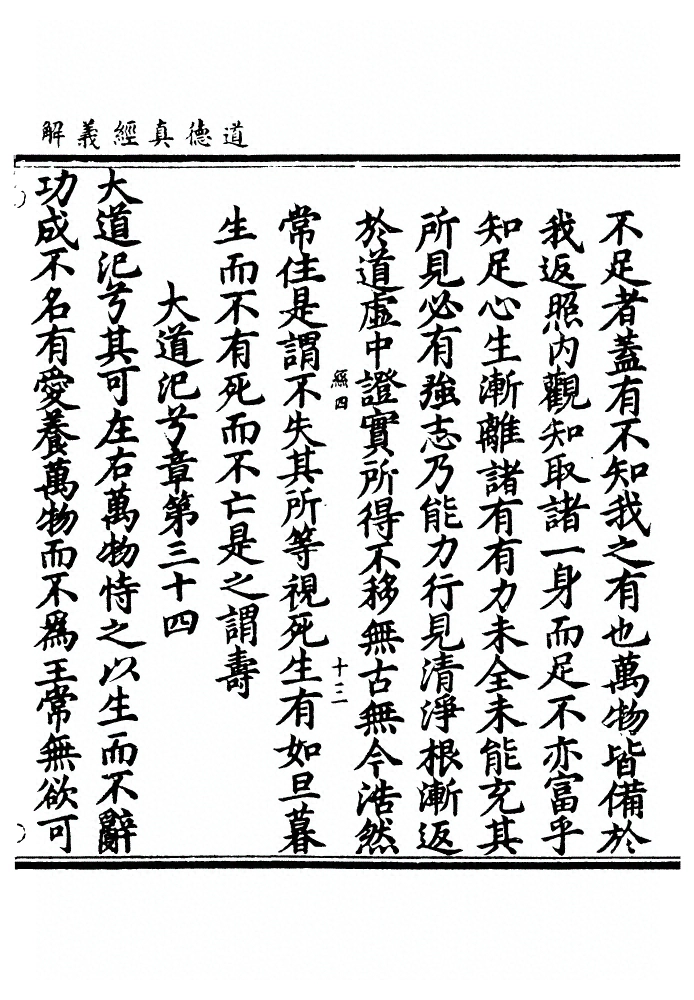 道德真經義解
不足者蓋有不知我之有也萬物皆備於
我返照內觀知取諸一身而足不亦富乎
知足心生漸離諸有有力未全未能充其
所見必有強志乃能力行見清淨根漸返
於道虛中證實所得不移無古無今浩然
緜四
十二
常住是謂不失其所等視死生有如旦暮
生而不有死而不亡是之謂壽
大道汜兮章第三十四
大道汜兮其可左右萬物恃之以生而不辭
功成不名有愛養萬物而不為主常無欲可